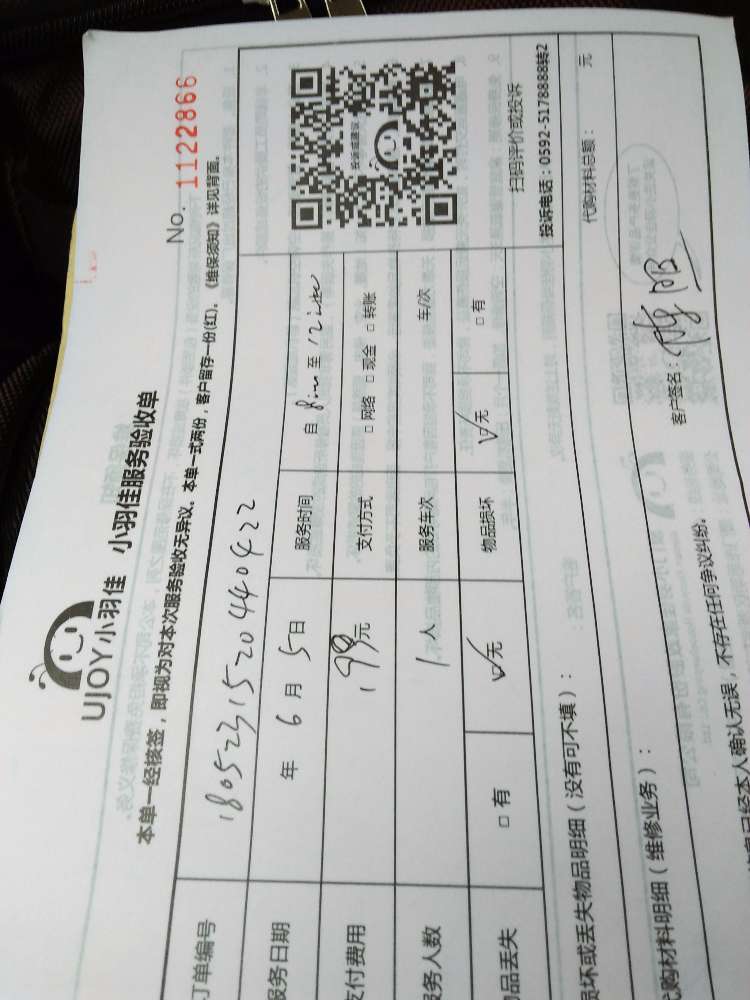 UJOY小羽佳 小羽佳服务验收单
No. 1122866
本单一经核签，即视为对本次服务验收无异议。本单一式两份，客户留存一份(红)。《维保须知》详见背面。
订单编号 180523152044 0422
服务日期 年 6 月 5 日 服务时间 自 8:00 至 12:00
支付费用 198元 支付方式 □ 网络 □ 现金 □ 转账
服务人数 1 人 服务车次 车/次
物品丢失 □ 有 ☑无 物品损坏 ☑无 □ 有
投诉或建议
扫码评价或投诉
投诉电话：0592-5178888转2
损坏或丢失物品明细（没有可不填）：
代购材料明细（维修业务）：
代购材料总额： 元
信息已经本人确认无误，不存在任何争议纠纷。
客户签名：